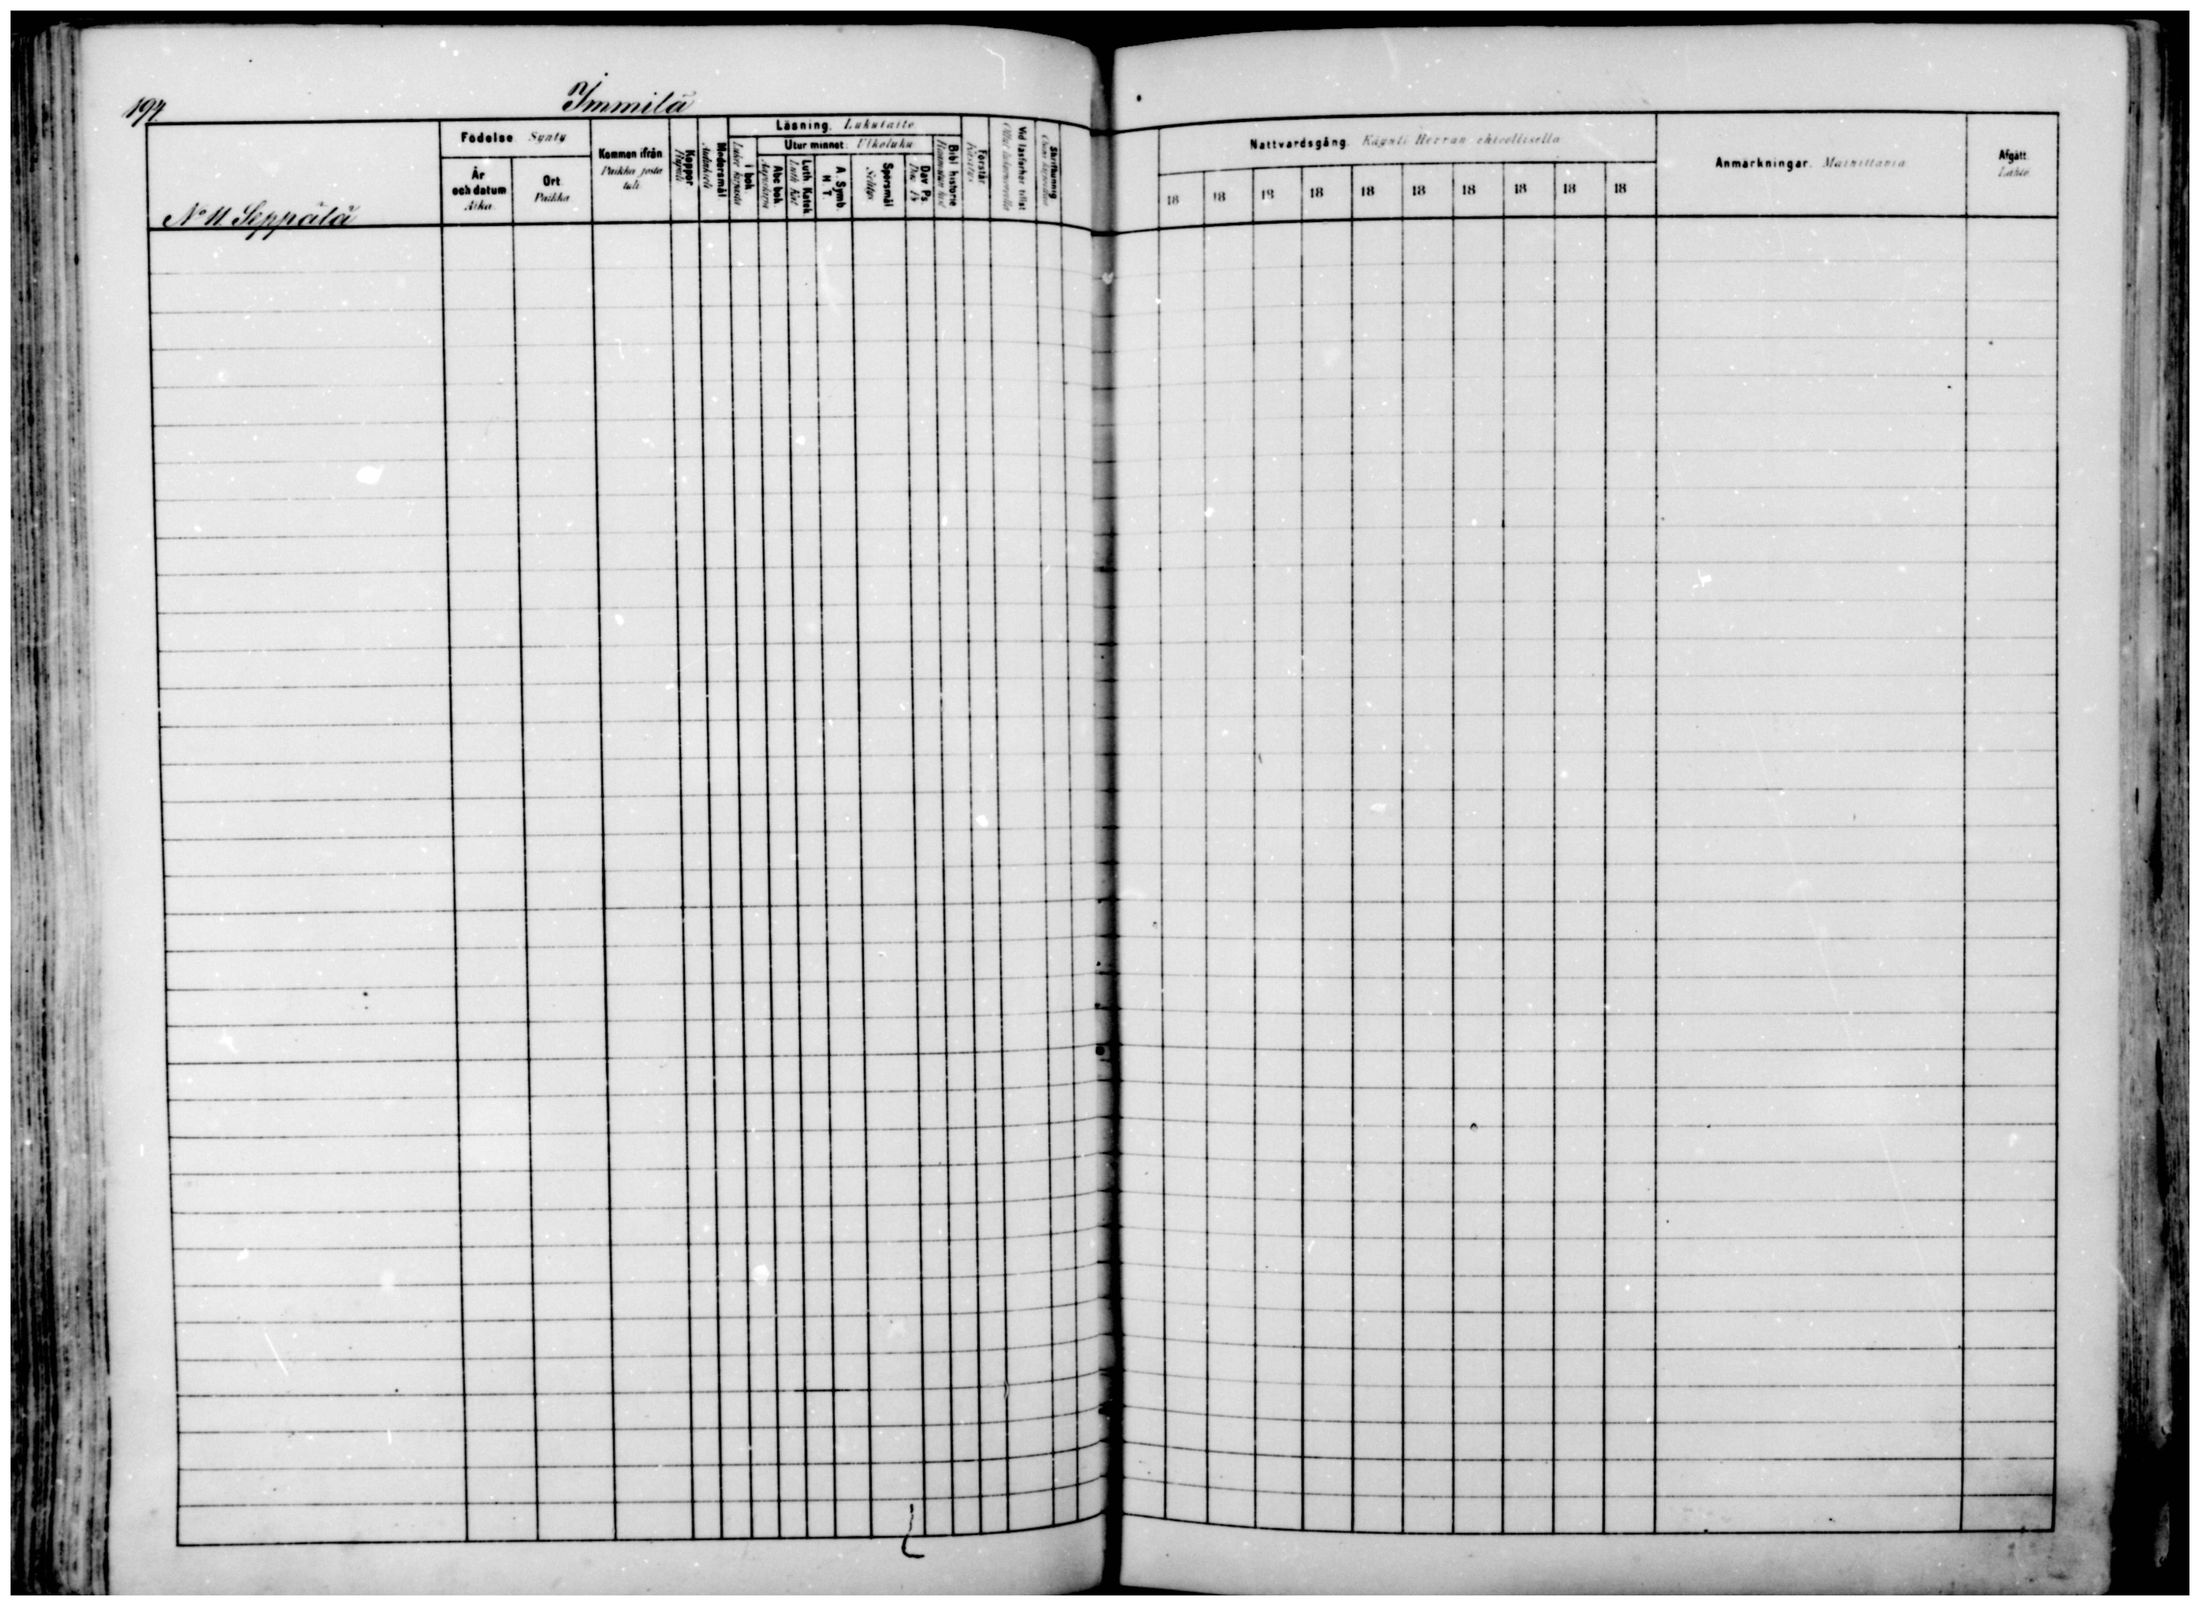 197.
Immilä
No 11. Seppälä
Födelse. Synty
År och datum
Aika.
Ort.
Paikka
Kommen ifrån
Paikka josta tuli.
Koppor
Rupuli
Modersmål
Läsning. Lukutaito.
I bok
Utur minnet. Ulkoluku
Abc bok
Luth Katek
Luth Kat
A. Symb.
H T.
Spörsmål
Selitys
Dav Ps.
Dav Ps
Bibl historie
Förstår
Käsitys
Vid läsförhör tillst
Skriftkunnig
Nattvardsgång. Käynti Herran ehtoollisella
18 18 18 18 18 18 18 18 18 18
Anmärkningar. Mainittavia
Afgått.
Lähtö.